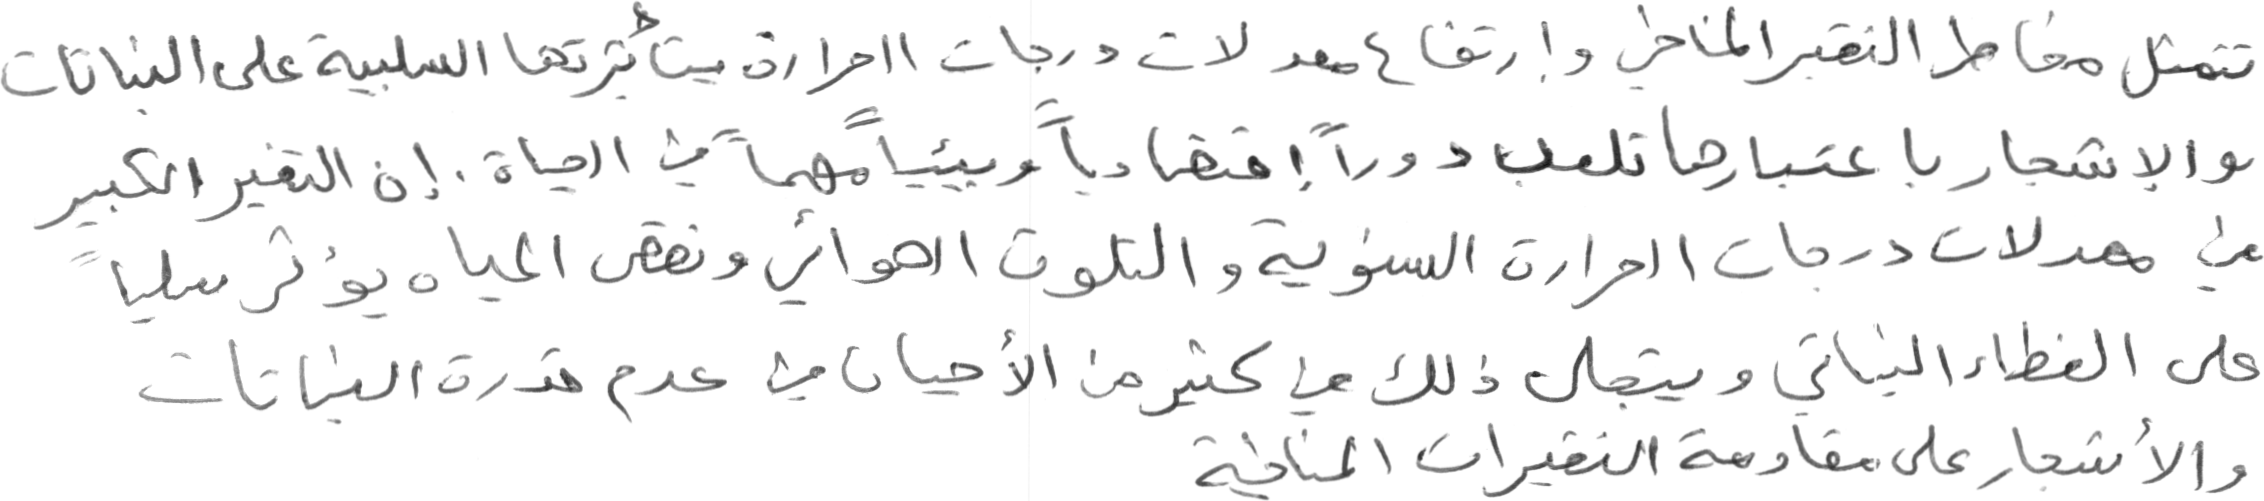 تتمثل مخاطر التغير المناخي وإرتفاع معدلات درجات الحرارة بتأثيرتها السلبية على النباتات
والإشجار باعتبارها تلعب دوراً إقتصادياً وبيئياً مهماً في الحياة. إن التغير الكبير
في معدلات درجات الحرارة السنوية والتلوث الهوائي ونقص المياه يؤثر سلباً
على الغطاء النباتي ويتجلى ذلك في كثير من الأحيان في عدم قدرة النباتات
والأشجار على مقاومة التغيرات المناخية